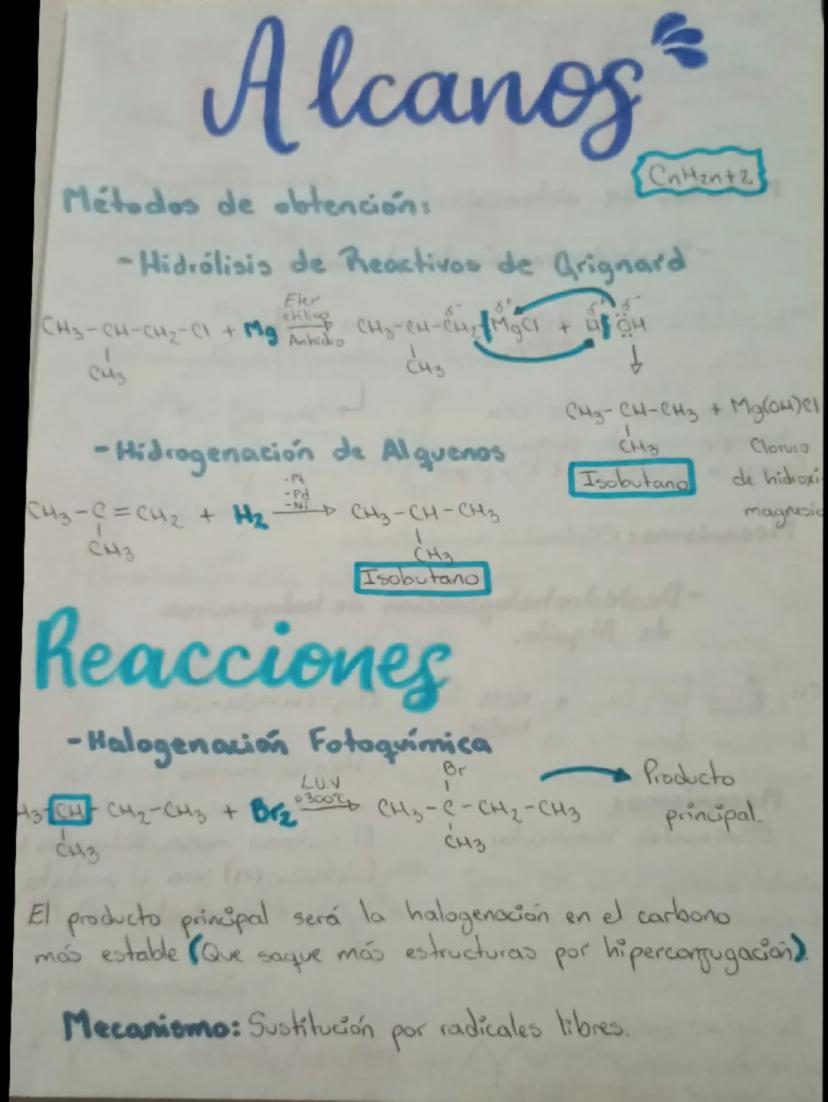 Alcanos
CnH2n+2
Métodos de obtención:
-Hidrólisis de Reactivos de Grignard
CH3-CH-CH2-Cl + Mg Eter etílico Anhidro CH3-CH-CH2 MgCl + H OH
CH3 CH3
CH3-CH-CH3 + Mg(OH)Cl
CH3 Cloruro
Isobutano de hidroxi
magnesio
-Hidrogenación de Alquenos
CH3-C=CH2 + H2 -Pt -Pd -Ni CH3-CH-CH3
CH3 CH3
Isobutano
Reacciones
-Halogenación Fotoquímica
Br
H3-CH-CH2-CH3 + Br2 L.U.V o 300°C CH3-C-CH2-CH3
CH3 CH3
Producto
principal.
El producto principal será la halogenación en el carbono
más estable (Que saque más estructuras por hiperconjugación).
Mecanismo: Sustitución por radicales libres.